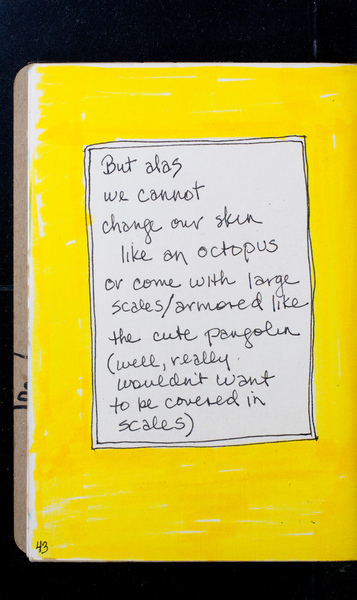 But alas
we cannot
change our skin
like an octopus
or come with large
scales/armored like
the cute pangolin
(well, really
wouldn't want
to be covered in
scales)
43